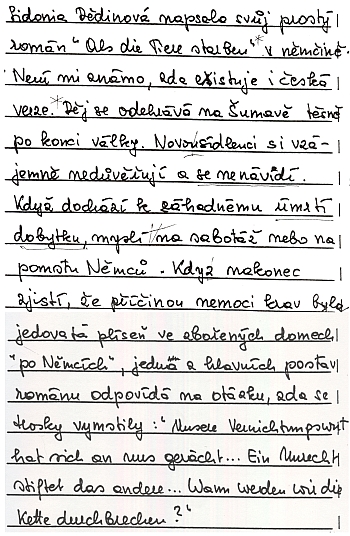 Sidonia Dědinová napsala svůj prostý
román "Als die Tiere starben"* v němčině.
Není mi známo, zda existuje i česká
verze.* Děj se odehrává na Šumavě těsně
po konci války. Novousídlenci si vzá-
jemně nedůvěřují a se nenávidí.
Když dochází k záhadnému úmrtí
dobytku, myslí na sabotáž nebo na
pomstu Němců. Když nakonec
zjistí, že příčinou nemoci krav byla
jedovatá plíseň ve zbořených domech
"po Němcích", jedna z hlavních postav
románu odpovídá na otázku, zda se
trosky vymstily: "Unsere Vernichtungswut
hat sich an uns gerächt... Ein Unrecht
stiftet das andere... Wann werden wir die
Kette durchbrechen?"